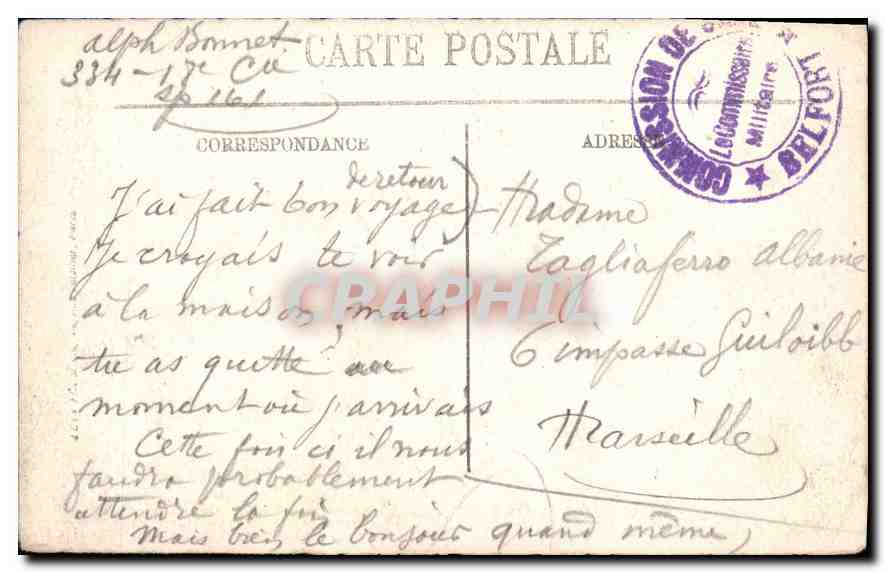 Alph Bonnet
334 - 17e Cie
sp 161
CARTE POSTALE
COMMISSION DE
BELFORT
Le Commissaire
Militaire
CORRESPONDANCE
J'ai fait bon voyage
de retour
Je croyais te voir
à la maison, mais
tu as quitté au
moment où j'arrivais
Cette fois ci il nous
faudra probablement
attendre la fin
Mais bien le bonjour quand même,
ADRESSE
Madame
Tagliaferro Albanie
6 impasse Guiloibb
Marseille
CRAPHIL